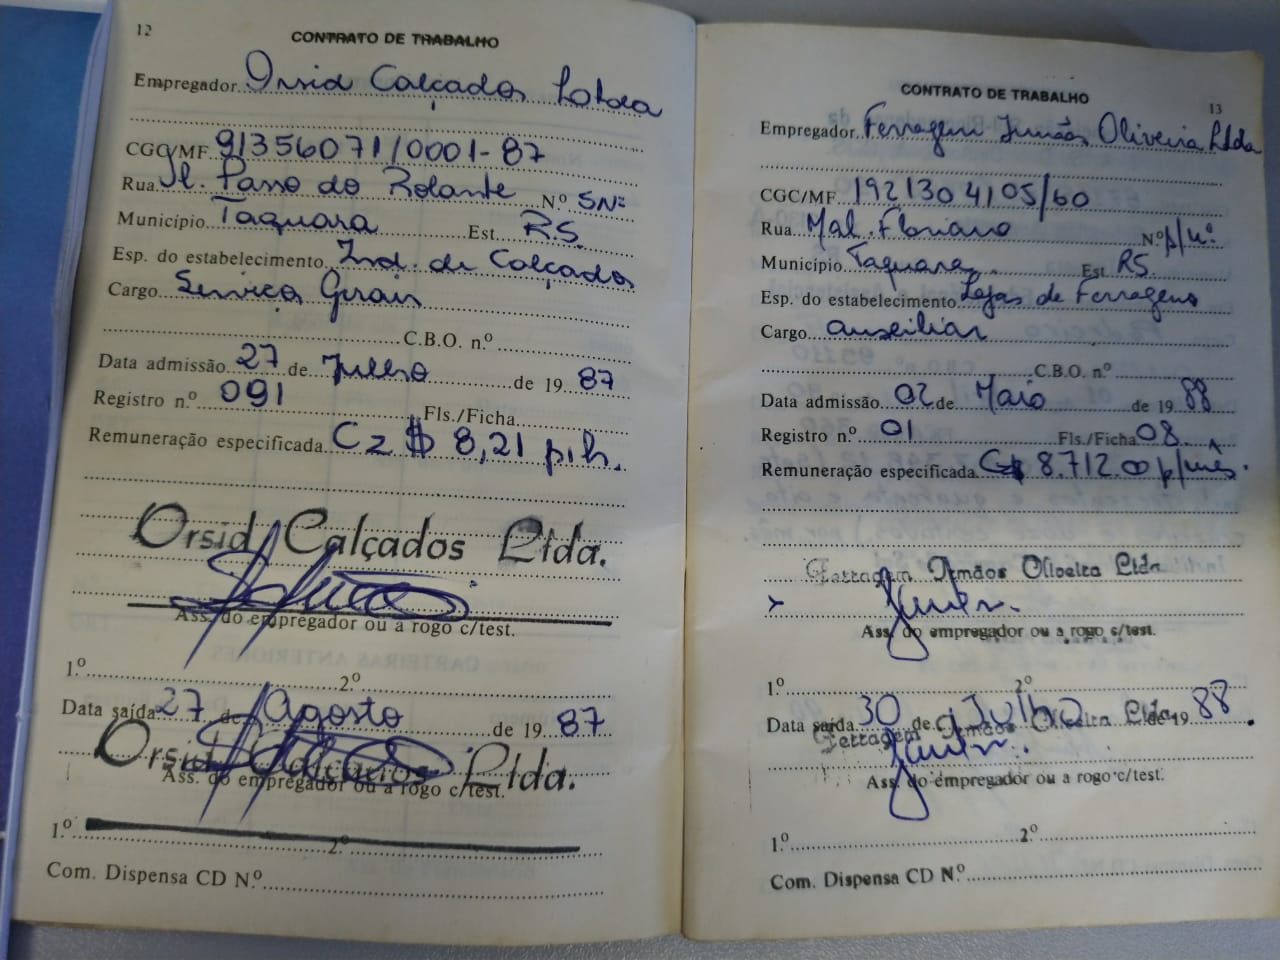 12
CONTRATO DE TRABALHO
Empregador Orsid Calçados Ltda
CGC/MF 91356071/0001-87
Rua Passo do Rolante N.º SNº
Município Taquara Est. RS.
Esp. do estabelecimento Ind. de Calçados
Cargo Serviços Gerais
C.B.O. n.º
Data admissão 27 de Julho de 19 87
Registro n.º 091 Fls./Ficha
Remuneração especificada Cz $ 8,21 p.h.
Orsid Calçados Ltda.
Ass. do empregador ou a rogo c/test.
1.º 2º
Data saída 27 de Agosto de 19 87
Orsid Calçados Ltda.
Ass. do empregador ou a rogo c/test.
1.º 2º
Com. Dispensa CD N.º
CONTRATO DE TRABALHO
13
Empregador Ferragem Irmãos Oliveira Ltda
CGC/MF 192130 4105/60
Rua Mal. Floriano N.º
Município Taquara Est. RS.
Esp. do estabelecimento Lojas de Ferragens
Cargo auxiliar
C.B.O. n.º
Data admissão 02 de Maio de 19 88
Registro n.º 01 Fls./Ficha 08.
Remuneração especificada Cz$ 8.712.00 p/mês.
Ferragem Irmãos Oliveira Ltda.
Ass. do empregador ou a rogo c/test.
1.º 2º
Data saída 30 de Julho de 19 88.
Ferragem Irmãos Oliveira Ltda.
Ass. do empregador ou a rogo c/test.
1.º 2.º
Com. Dispensa CD N.º